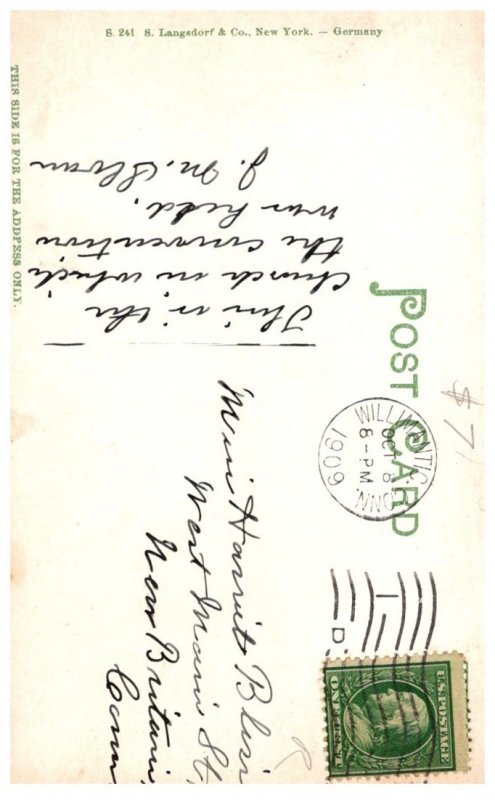 S. 241 S. Langsdorf & Co., New York. — Germany
THIS SIDE IS FOR THE ADDRESS ONLY.
POST CARD
This is the
church in which
the convention
was held.
J. M. Sloan
WILLIMANTIC
OCT 8
8-PM
1909
CONN.
$7
Miss Harriet Bliss
West Main St.
New Britain,
Conn
U.S. POSTAGE
ONE CENT